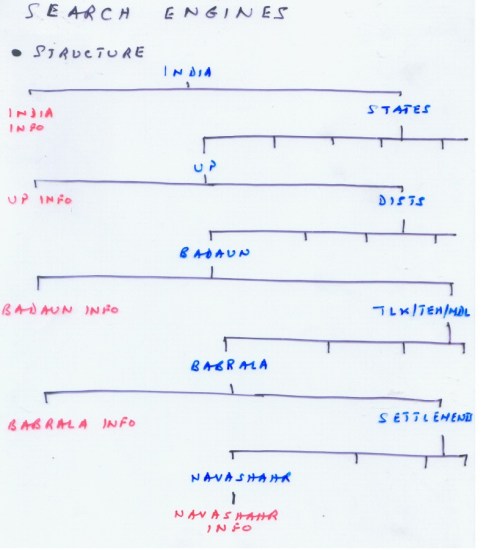 SEARCH ENGINES
• STRUCTURE
INDIA
INDIA
INFO
STATES
UP
UP INFO
DISTS
BADAUN
BADAUN INFO
TLK/TEH/MDL
BABRALA
BABRALA INFO
SETTLEMEND
NAVASHAHR
NAVASHAHR
INFO